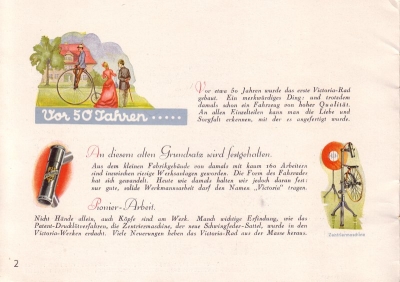 Vor 50 Jahren.....
Vor etwa 50 Jahren wurde das erste Victoria-Rad
gebaut. Ein merkwürdiges Ding: und trotzdem
damals schon ein Fahrzeug von hoher Qualität.
An allen Einzelteilen kann man die Liebe und
Sorgfalt erkennen, mit der es angefertigt wurde.
An diesem alten Grundsatz wird festgehalten.
Aus dem kleinen Fabrikgebäude von damals mit kaum 160 Arbeitern
sind inzwischen riesige Werksanlagen geworden. Die Form des Fahrrades
hat sich gewandelt. Heute wie damals halten wir jedoch daran fest:
nur gute, solide Werkmannsarbeit darf den Namen „Victoria" tragen.
Pionier-Arbeit.
Nicht Hände allein, auch Köpfe sind am Werk. Manch wichtige Erfindung, wie das
Patent-Drucklötverfahren, die Zentriermaschine, der neue Schwingfeder-Sattel, wurde in den
Victoria-Werken erdacht. Viele Neuerungen heben das Victoria-Rad aus der Masse heraus.
Zentriermaschine
2